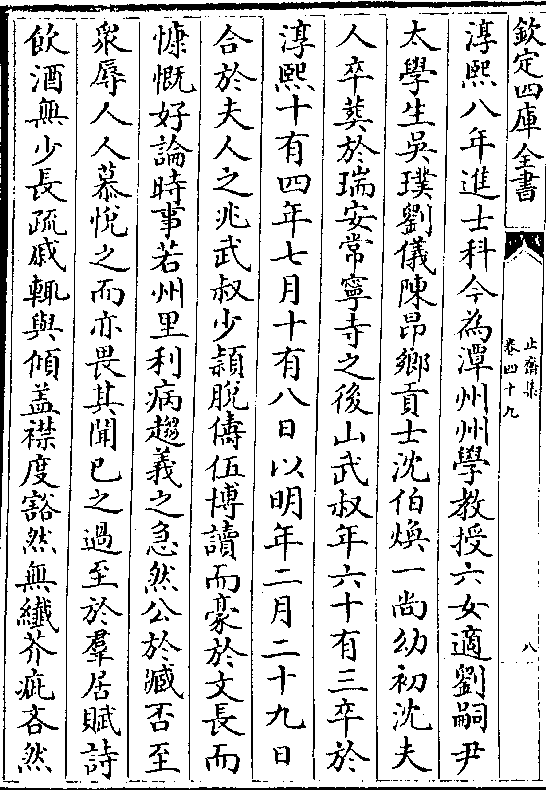 欽定四庫全書
止齋集
卷四十九
八
淳熙八年進士科今為潭州州學教授六女適劉嗣尹
太學生吳璞劉儀陳昂鄉貢士沈伯煥一尚幼初沈夫
人卒葬於瑞安常寧寺之後山武叔年六十有三卒於
淳熙十有四年七月十有八日以明年二月二十九日
合於夫人之兆武叔少穎脫儔伍博讀而豪於文長而
慷慨好論時事若州里利病趨義之急然公於臧否至
衆辱人人慕悅之而亦畏其聞已之過至於羣居賦詩
飲酒無少長疏戚輒與傾盖襟度豁然無纖芥疵吝然